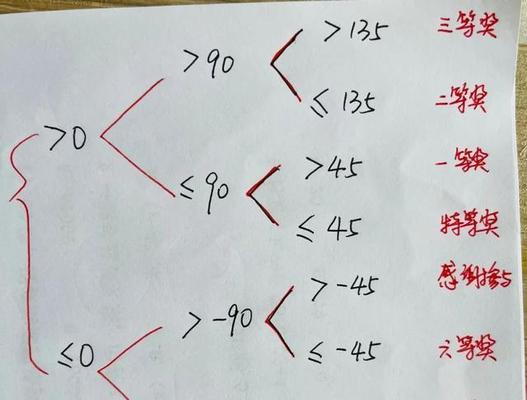 >135 三等奖
>90
≤135 二等奖
>0
>45 一等奖
≤90
≤45 特等奖
感谢参与
>-45
>-90
≤0
≤-45 六等奖